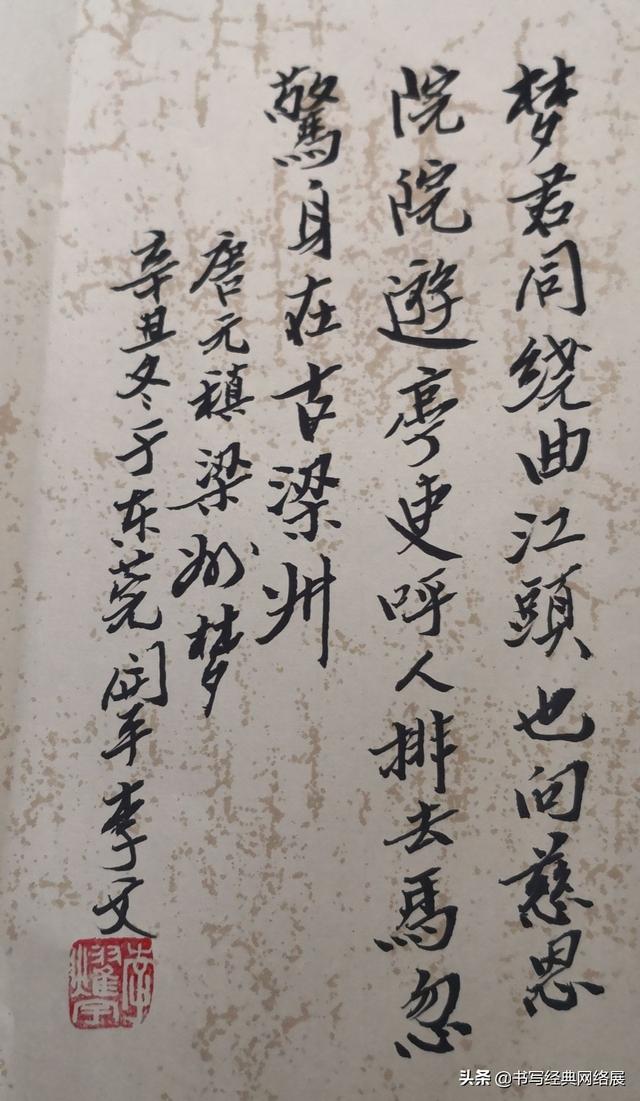 梦君同绕曲江頭也向慈恩
院院遊亭吏呼人排去馬忽
驚身在古梁州
唐元稹梁州梦
辛丑冬于东莞平李文
头条 @书写经典网络展